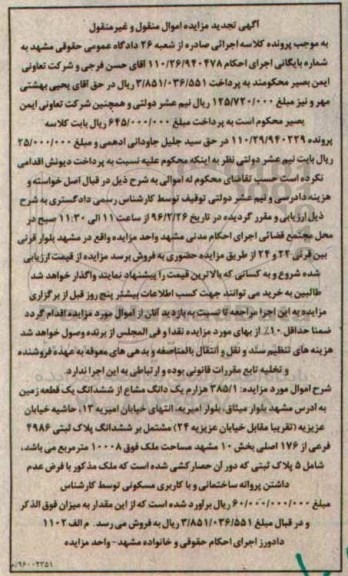 آگهی تجدید مزایده اموال منقول و غیرمنقول
به موجب پرونده کلاسه اجرائی صادره از شعبه ۲۶ دادگاه عمومی حقوقی مشهد به
شماره بایگانی اجرای احکام ۱۱۰/۲۶/۹۴۰۴۷۸ آقای حسن فرجی و شرکت تعاونی
ایمن بصیر محکومند به پرداخت ۳/۸۵۱/۰۳۶/۵۵۱ ریال در حق آقای یحیی بهشتی
مهر و نیز مبلغ ۱۲۵/۷۲۰/۰۰۰ ریال نیم عشر دولتی و همچنین شرکت تعاونی ایمن
بصیر محکوم است به پرداخت مبلغ ۶۴۵/۰۰۰/۰۰۰ ریال بابت کلاسه
پرونده ۱۱۰/۲۹/۹۴۰۲۲۹ در حق سید جلیل جاودانی ادهمی و مبلغ ۲۵/۰۰۰/۰۰۰
ریال بابت نیم عشر دولتی نظر به اینکه محکوم علیه نسبت به پرداخت دیونش اقدامی
نکرده است حسب تقاضای محکوم له اموالی به شرح ذیل در قبال اصل خواسته و
هزینه دادرسی و نیم عشر دولتی توقیف توسط کارشناس رسمی دادگستری به شرح
ذیل ارزیابی و مقرر گردیده در تاریخ ۹۶/۲/۲۶ از ساعت ۱۱ الی ۱۱:۳۰ صبح در
محل مجتمع قضائی اجرای احکام مدنی مشهد واحد مزایده واقع در مشهد بلوار قرنی
بین قرنی ۲۲ و ۲۴ از طریق مزایده حضوری به فروش برسد مزایده از قیمت ارزیابی
شده شروع و به کسانی که بالاترین قیمت را پیشنهاد نمایند واگذار خواهد شد
طالبین به خرید می توانند جهت کسب اطلاعات بیشتر پنج روز قبل از برگزاری
مزایده به این اجرا مراجعه تا نسبت به بازدید آنان از اموال مورد مزایده اقدام گردد
ضمنا حداقل ۱۰٪ از بهای مورد مزایده نقدا و فی المجلس از برنده وصول خواهد شد
هزینه های تنظیم سند و نقل و انتقال بالمناصفه و بدهی های معوقه به عهده فروشنده
و تخلیه تابع مقررات قانونی بوده و ارتباطی به این اجرا ندارد.
شرح اموال مورد مزایده: ۳۸۵/۱ هزارم یک دانگ مشاع از ششدانگ یک قطعه زمین
به آدرس مشهد بلوار میثاق، بلوار امیریه، انتهای خیابان امیریه ۱۳، حاشیه خیابان
عزیزیه (تقریبا مقابل خیابان عزیزیه ۲۴) مشتمل بر ششدانگ پلاک ثبتی ۴۹۸۶
فرعی از ۱۷۶ اصلی بخش ۱۰ مشهد مساحت ملک فوق ۱۰۰۰۸ مترمربع می باشد،
شامل ۵ پلاک ثبتی که دور آن حصارکشی شده است که ملک مذکور با فرض عدم
داشتن پروانه ساختمانی و با کاربری مسکونی توسط کارشناس
مبلغ ۶۰/۰۰۰/۰۰۰/۰۰۰ ریال برآورد شده است که از این مقدار به میزان فوق الذکر
و در قبال مبلغ ۳/۸۵۱/۰۳۶/۵۵۱ ریال به فروش می رسد. م الف ۱۱۰۲
دادورز اجرای احکام حقوقی و خانواده مشهد - واحد مزایده
۹۶۰۰۲۳۵۱